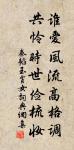 誰愛風流高格調
共憐時世儉梳妝
秦韜玉貧女詞興調集